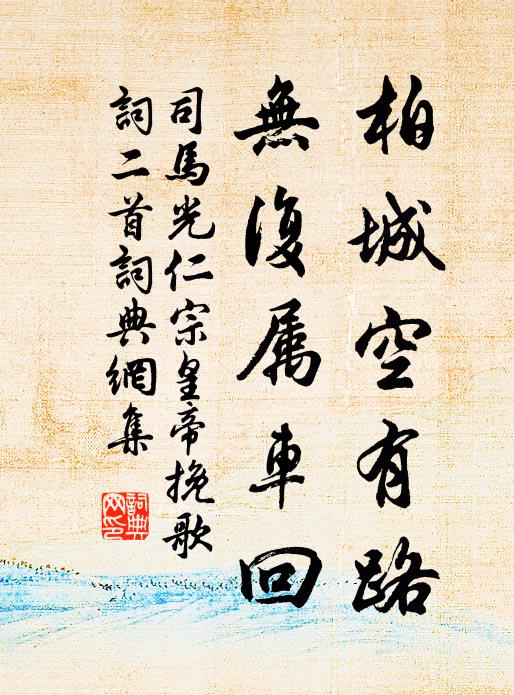 柏城空有路
無復属車回
司馬光仁宗皇帝挽歌
詞二首詞典網集
詞典
网印